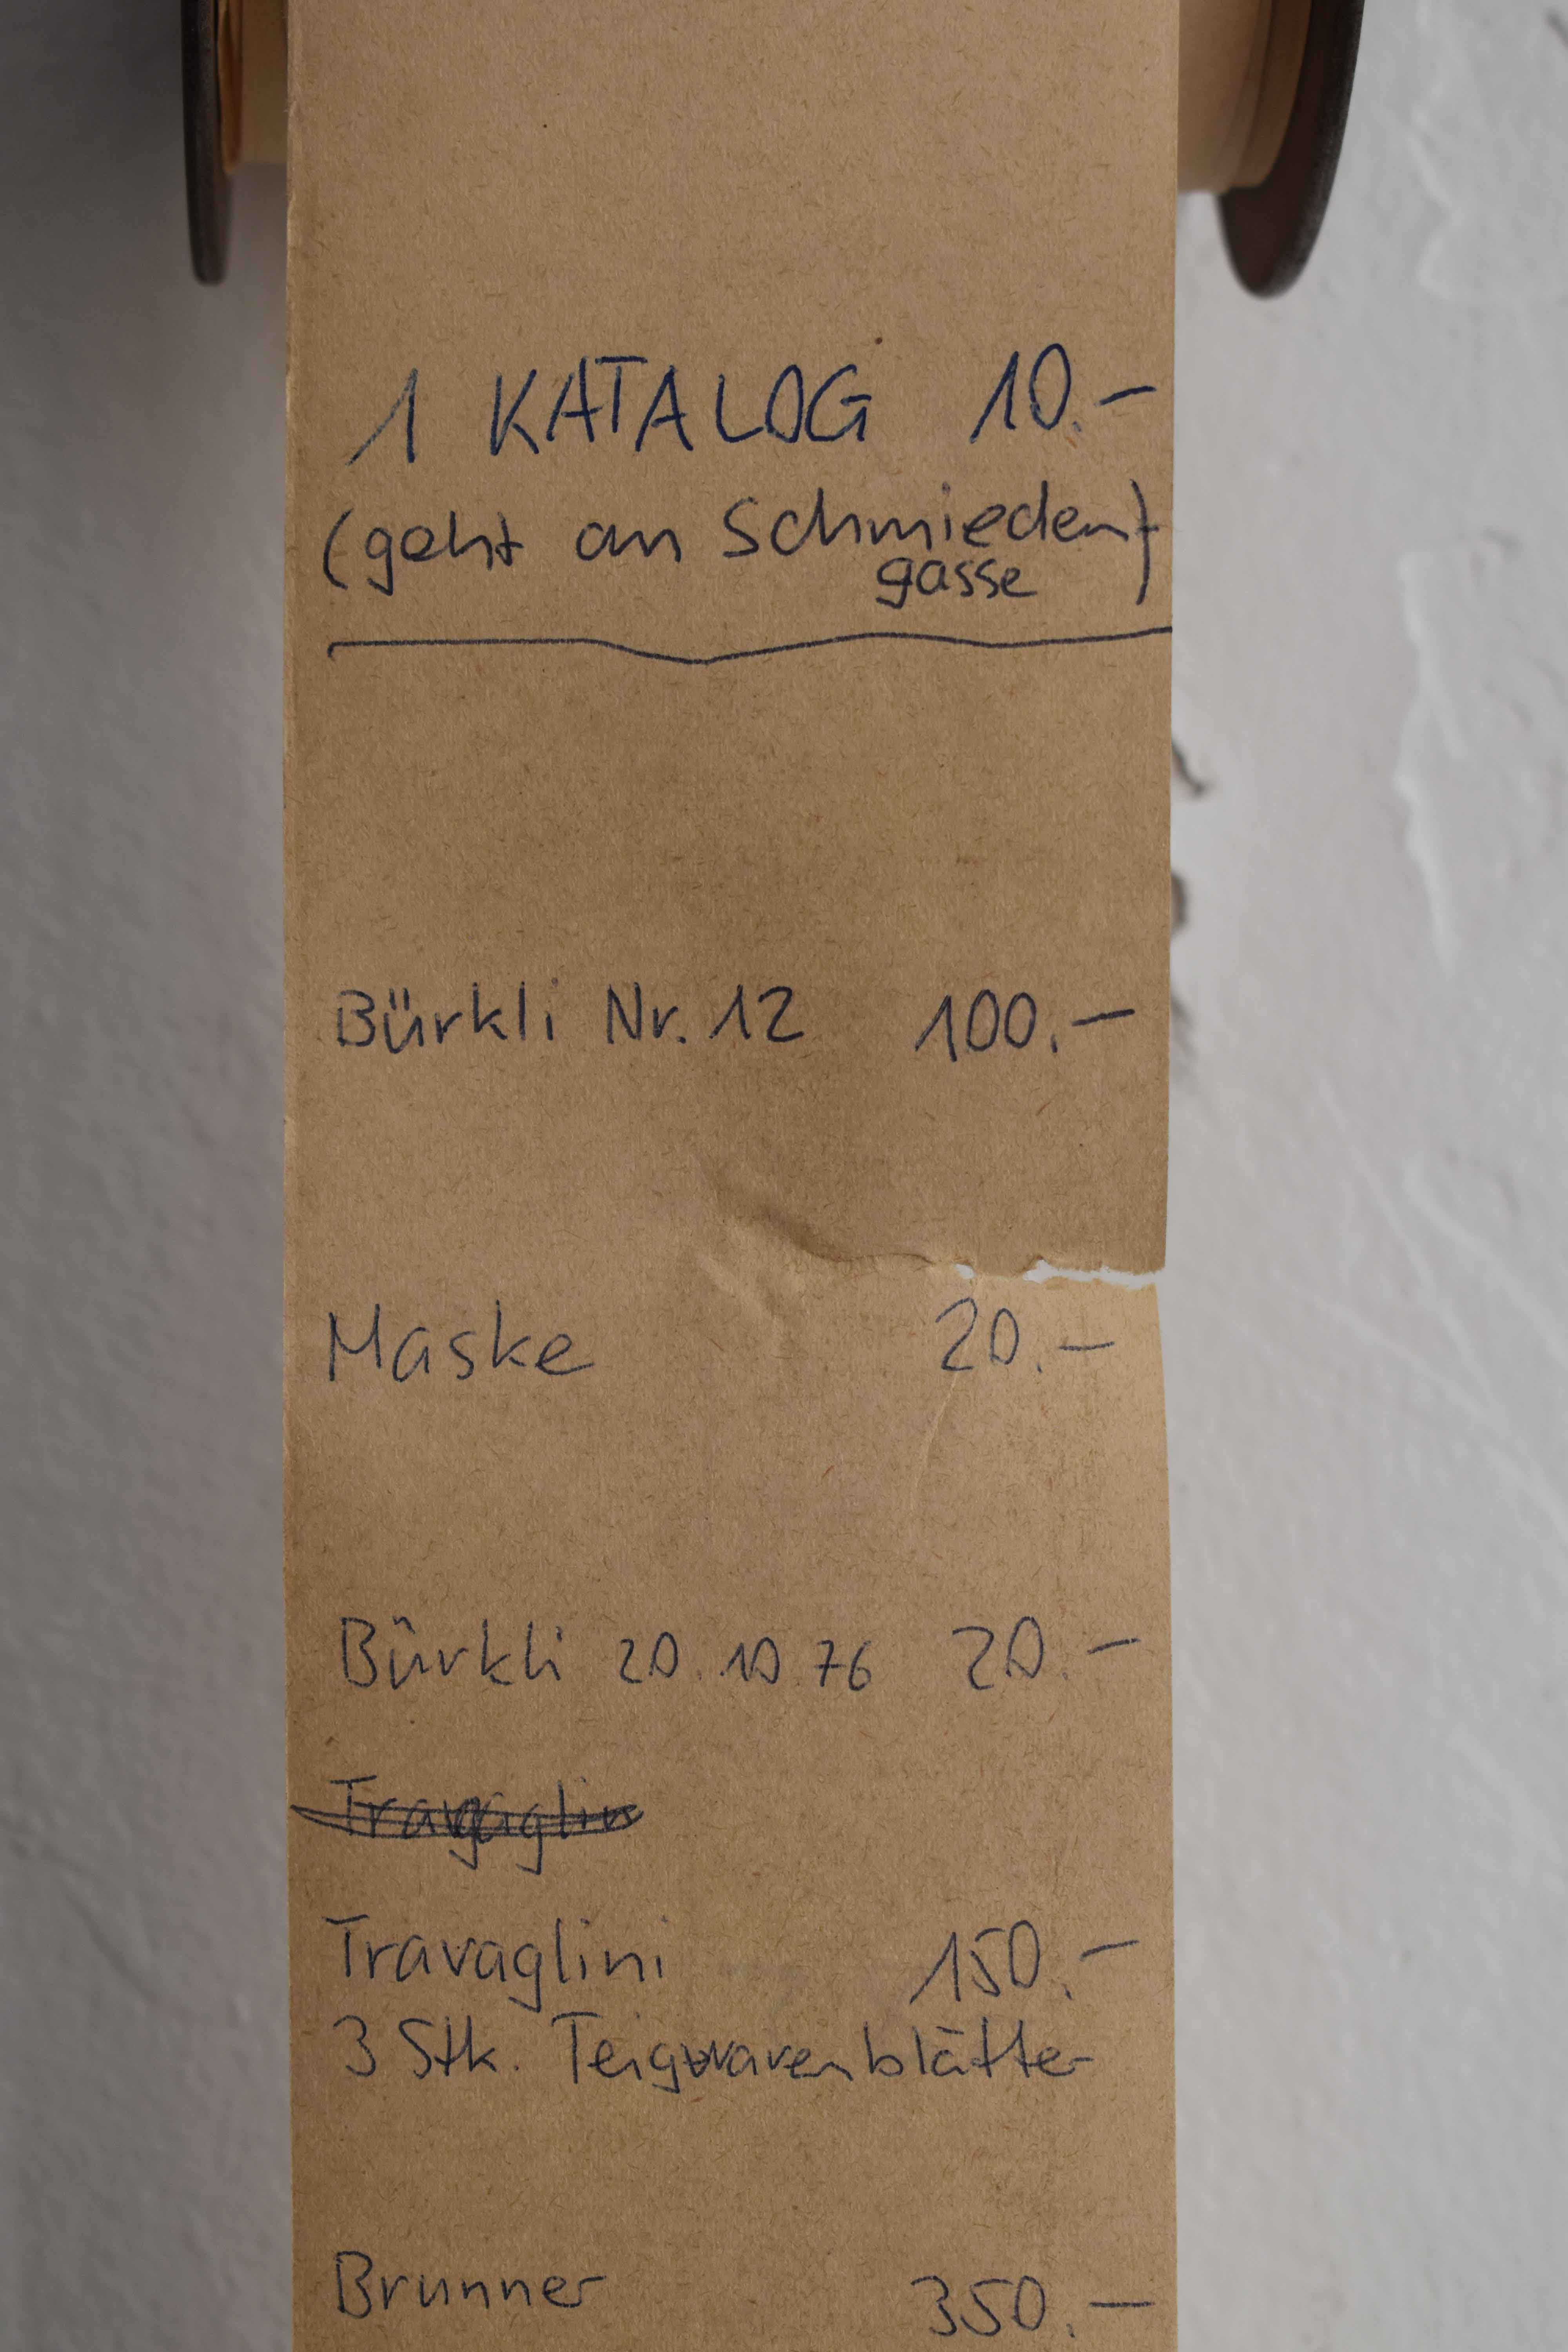 1 KATALOG 10.-
(geht an Schmieden)
gasse
Bürkli Nr. 12 100.-
Maske 20.-
Bürkli 20.10.76 20.-
Travaglin
Travaglini 150.-
3 Stk. Teigwarenblätter
Brunner 350.-